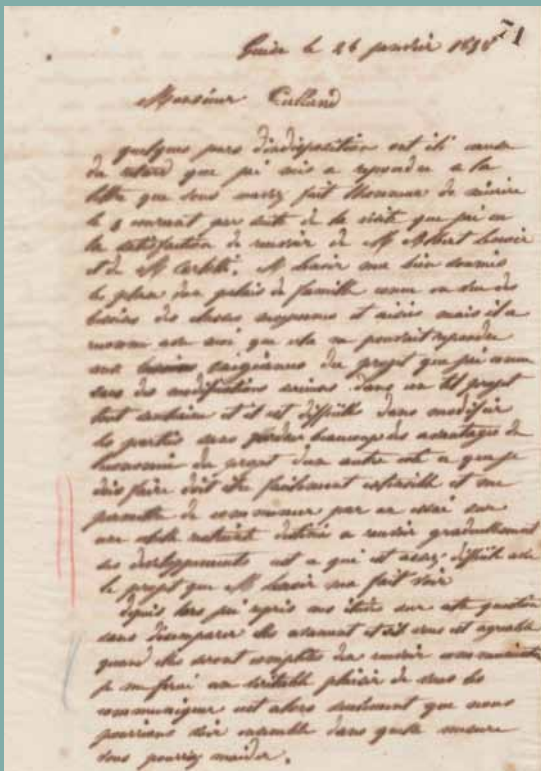 Guise le 26 janvier 1858
71
Monsieur Calland
quelques jours d'indisposition ont été cause
du retard que j'ai mis a repondre a la
lettre que vous m'avez fait l'honneur de m'écrire
le 4 courant par suite de la visite que j'ai eu
la satisfaction de recevoir de Mr Albert Lenoir
et de Mr Carletti. Mr Lenoir m'a bien soumis
le plan d'un palais de famille concu en vue des
besoins des classes moyennes et aisées mais il a
reconnu avec moi que cela ne pouvait repondre
aux besoins exigeances du projet que j'ai concu
sans des modifications dans un tel projet
tout s'enchaine et il est difficile d'en modifier
les parties sans perdre beaucoup des avantages de
l'economie du projet d'un autre coté ce que je
dois faire doit être facilement extensible et me
permettre de commencer par un essai sur
une echelle restreinte destiné a recevoir graduellement
ses developpements c'est ce qui est assez difficile avec
le projet que Mr Lenoir m'a fait voir
depuis lors j'ai repris mes études sur cette question
sans desemparer elles avancent et s'il vous est agreable
quand elles seront completes d'en recevoir communication
je me ferai un véritable plaisir de vous les
communiquer c'est alors seulement que nous
pourrions voir ensemble dans quelle mesure
vous pourriez m'aider.